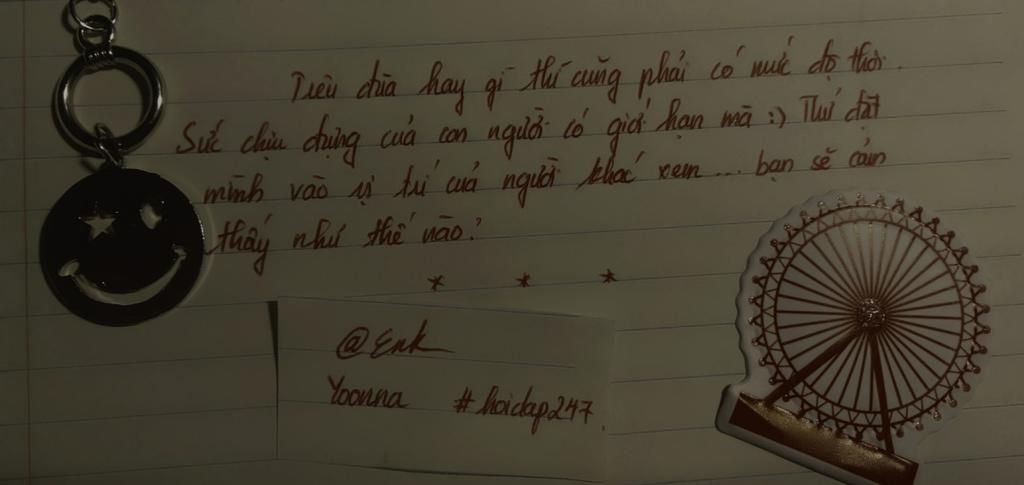 Trêu đùa hay gì thì cũng phải có mức độ thôi.
Sức chịu đựng của con người có giới hạn mà :) Thử đặt
mình vào vị trí của người khác xem... bạn sẽ cảm
thấy như thế nào?
* * *
@Enk
Yoonna #hoidap247